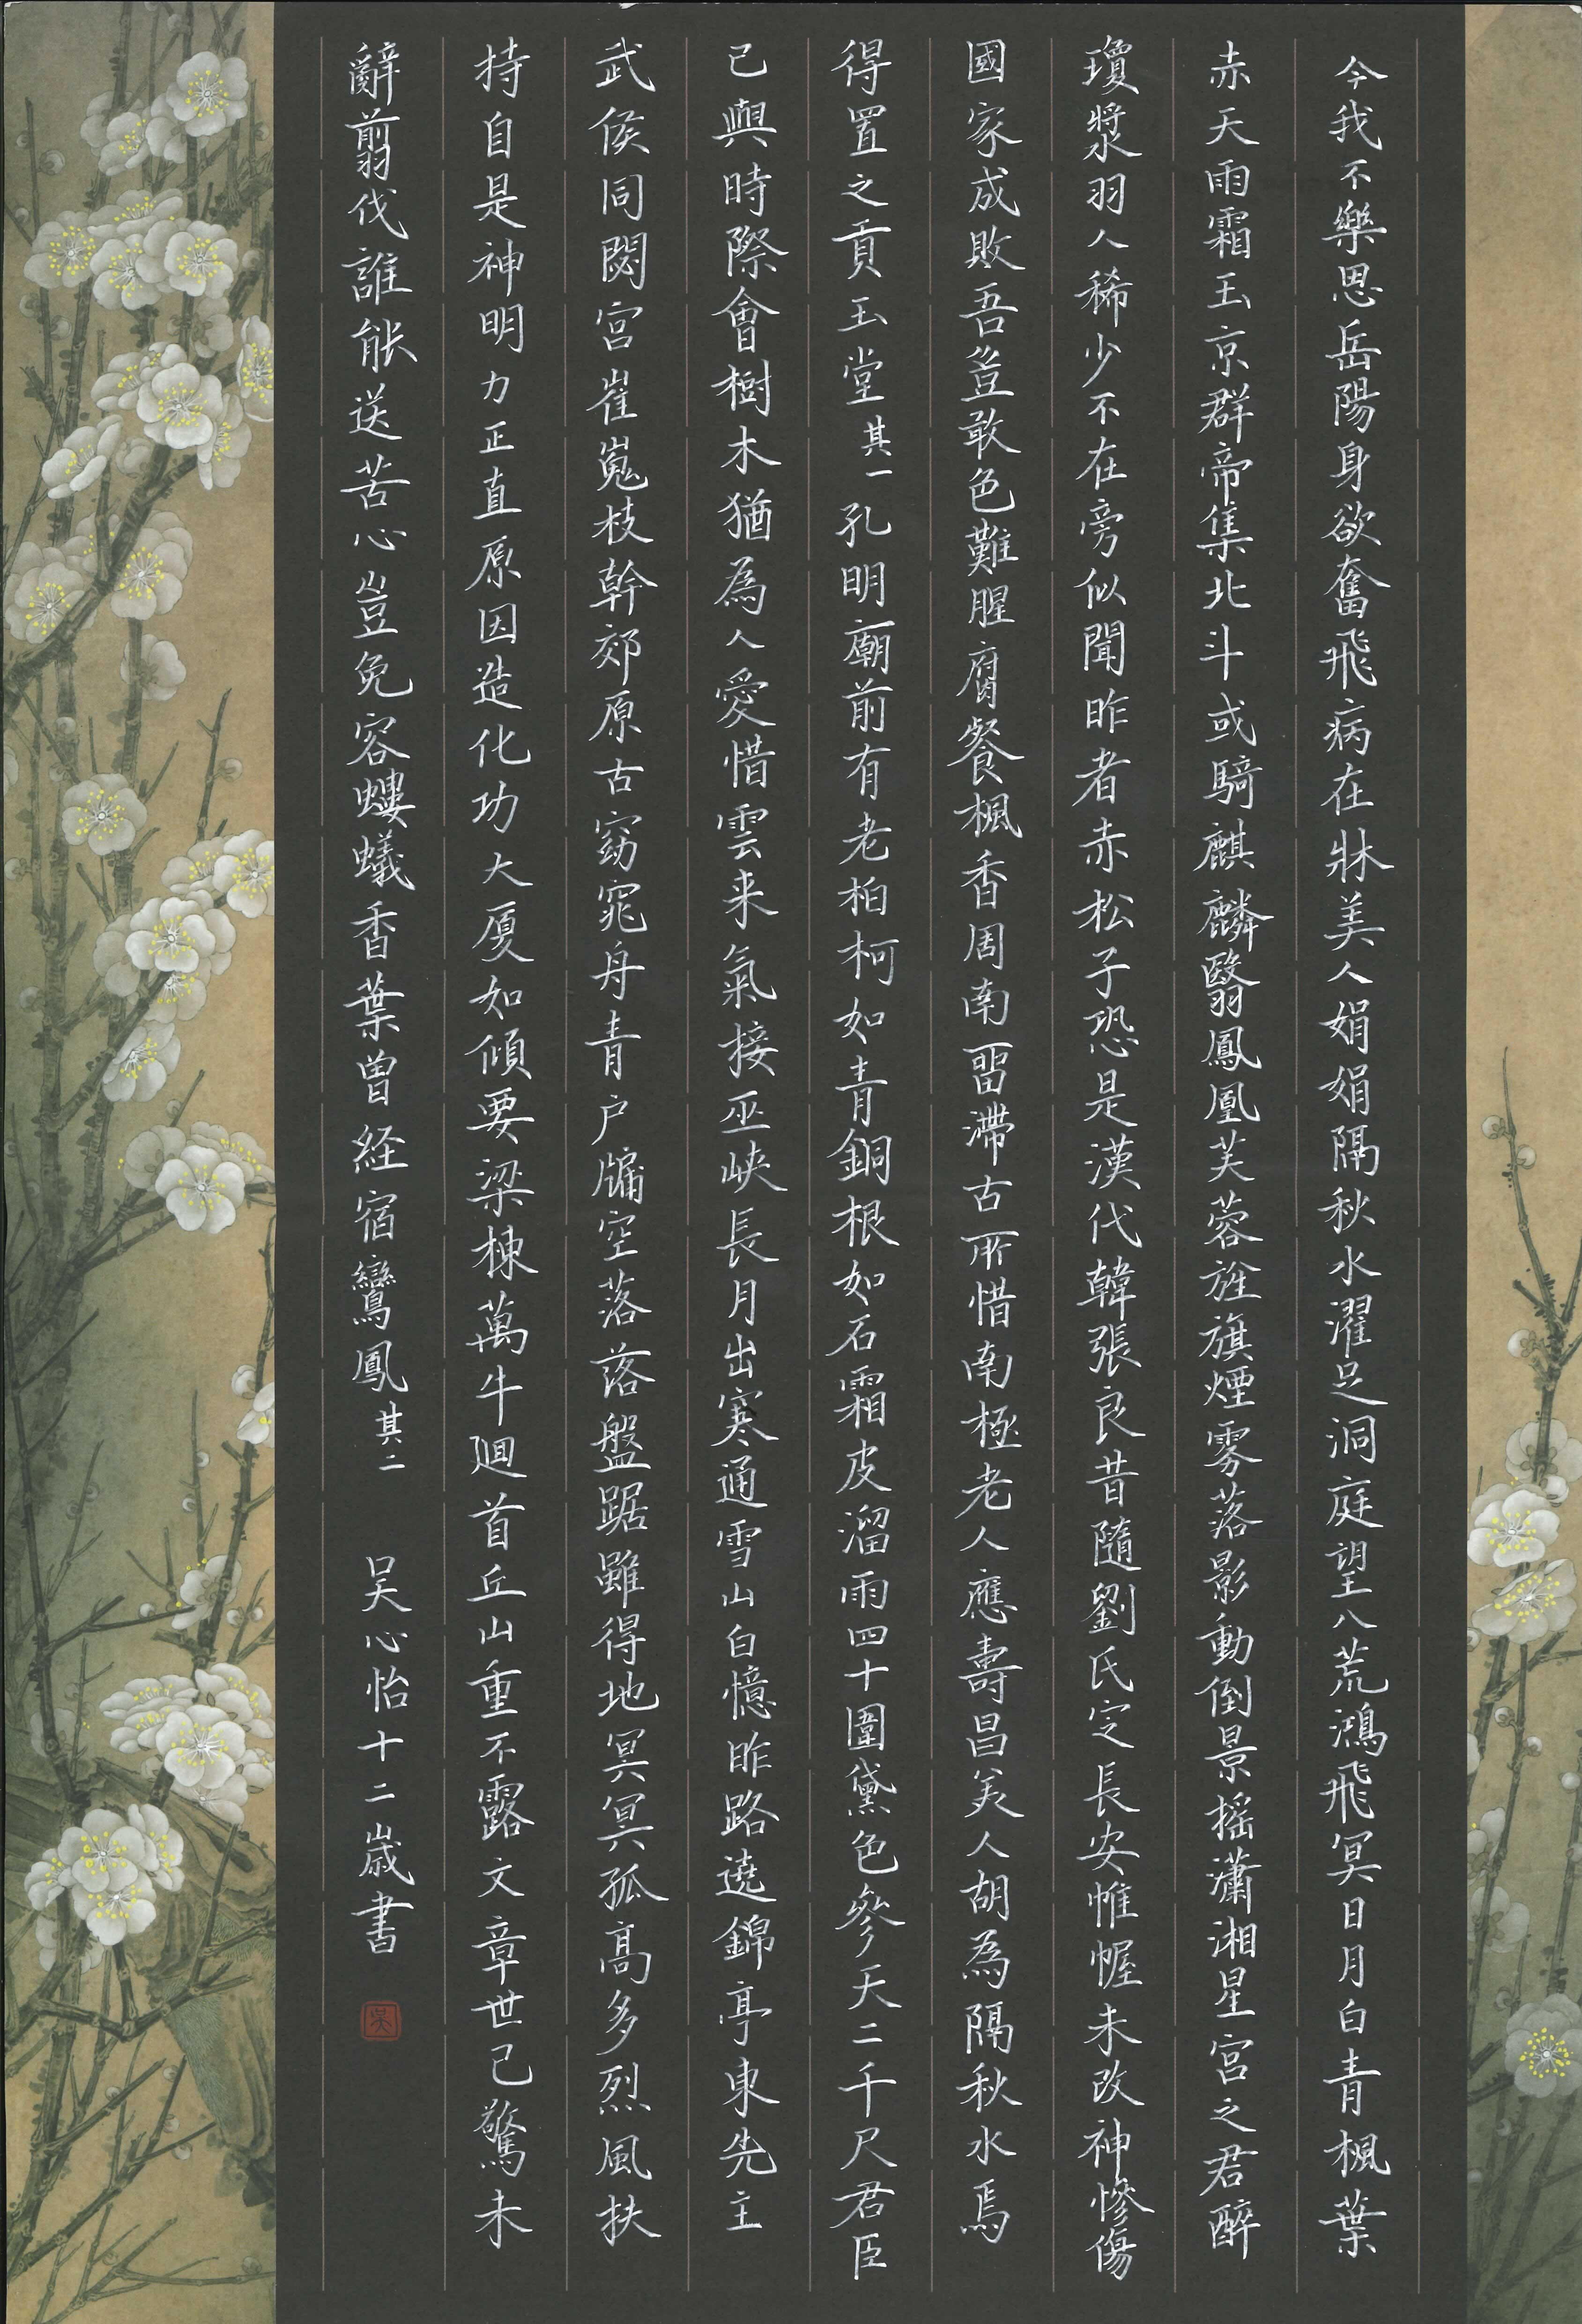 今我不樂思岳陽身欲奮飛病在牀美人娟娟隔秋水濯足洞庭望八荒鴻飛冥日月白青楓葉
赤天雨霜玉京群帝集北斗或騎麒麟翳鳳凰芙蓉旌旗煙雾落影動倒景搖瀟湘星宮之君醉
瓊漿羽人稀少不在旁似聞昨者赤松子恐是漢代韓張良昔隨劉氏定長安帷幄未改神慘傷
國家成敗吾豈敢色難腥腐餐楓香周南畱滯古所惜南極老人應壽昌美人胡為隔秋水焉
得置之貢玉堂其一孔明廟前有老柏柯如青銅根如石霜皮溜雨四十圍黛色參天二千尺君臣
已與時際會樹木猶為人愛惜雲来氣接巫峽長月出寒通雪山白憶昨路遶錦亭東先主
武侯同閟宮崔嵬枝幹郊原古窈窕丹青户牖空落落盤踞雖得地冥冥孤高多烈風扶
持自是神明力正直原因造化功大厦如傾要梁棟萬牛廻首丘山重不露文章世已驚未
辭翦伐誰能送苦心豈免容螻蟻香葉曾経宿鸞鳳其二 吴心怡十二歲書
吴